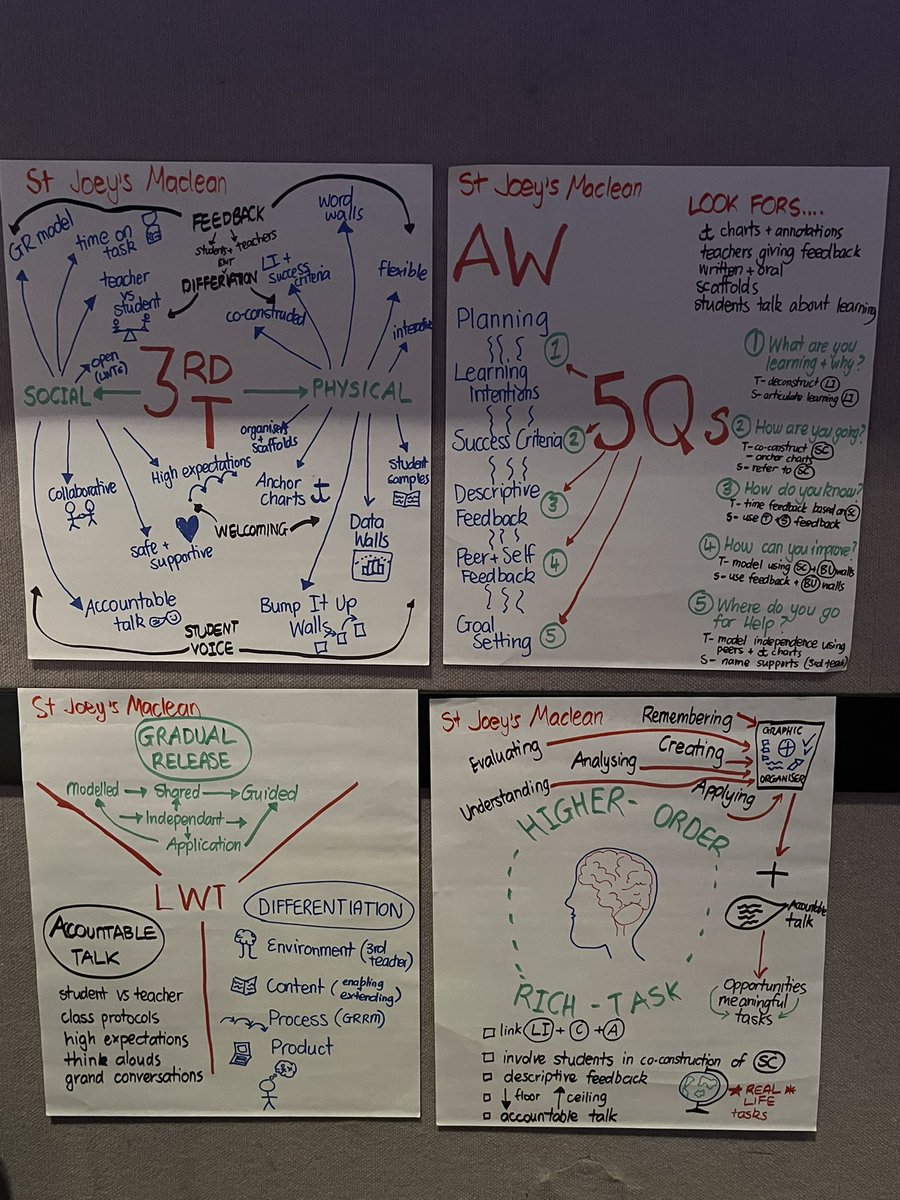 St Joey's Maclean
FEEDBACK
students + teachers
DIFFERIATION
GR model
time on
task
teacher
vs
student
open
LI +
success
criteria
co-constructed
word
walls
flexible
SOCIAL
3RD
T
PHYSICAL
High expectations
organisers
+
scaffolds
Anchor
charts
Student
samples
Collaborative
safe +
supportive
WELCOMING
Data
Walls
Accountable
talk
STUDENT
VOICE
Bump It Up
Walls
St Joey's Maclean
AW
LOOK FORS....
charts + annotations
teachers giving feedback
written + oral
scaffolds
students talk about learning
5Qs
Planning
1
Learning
Intentions
Success Criteria
2
Descriptive
Feedback
3
Peer + Self
Feedback
4
Goal
Setting
5
1 What are you
learning + why?
T- deconstruct LI
S- articulate learning LI
2 How are you going?
T- co-construct SC
- anchor charts
S- refer to SC
3 How do you know?
T- time feedback based on SC
S- use T + S feedback
4 How can you improve?
T- model using SC + BU walls
S- use feedback + BU walls
5 Where do you go
for Help?
T- model independence using
peers + charts
S- name supports (3rd teach)
St Joey's Maclean
GRADUAL
RELEASE
Modelled Shared Guided
Independant
Application
LWT
ACOUNTABLE
TALK
student vs teacher
class protocols
high expectations
think alouds
grand conversations
DIFFERENTIATION
Environment (3rd
teacher)
Content (enabling
extending)
Process (GRRM)
Product
St Joey's Maclean
Remembering
Evaluating
Creating
Analysing
Understanding
Applying
GRAPHIC
ORGANISER
HIGHER-ORDER
+
Accountable
talk
Opportunities
meaningful
tasks
RICH-TASK
link LI + C + A
involve students in co-construction of SC
descriptive feedback
floor ceiling
accountable talk
REAL
LIFE
tasks